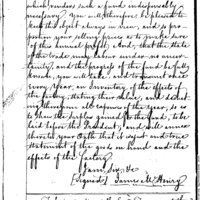 which renders such a fund indispensibly
necessary. You will therefore, be pleased to
keep this object always in view, and to pro-
portion your selling prices so as to make sure
of this annual profit. And, that the state
of the trade may labor under no uncer-
tainty, and the progress of the fund be fully
known, you will take, and transmit once
every Year, an Inventory of the effects of
the factory, stating their value, and deduct-
ing therefrom all expences of the same, so as
to shew the surplus gained for the fund, to be
laid before the President, and will annex
thereto your Oath that it is a just and true
statement of the goods on hand and the
effects of the factory.
I am Sir, &c
(signed) James McHenry